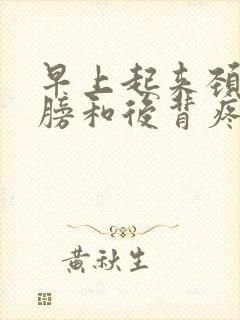 早上起来頸
膀和後背疼
黃秋生